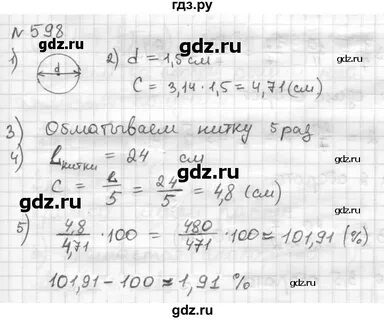 гдз.ру
№598
1) d 2) d = 1,5 см
C = 3,14 · 1,5 = 4,71 (см)
3) Обматываем нитку 5 раз
4) ℓ нитки = 24 см
C = ℓ/5 = 24/5 = 4,8 (см)
5) 4,8/4,71 · 100 = 480/471 · 100 ≈ 101,91 (%)
101,91 - 100 ≈ 1,91 %
gdz.ru
gdz.ru
gdz.ru
gdz.ru
gdz.ru
gdz.ru
gdz.ru
gdz.ru
gdz.ru
gdz.ru